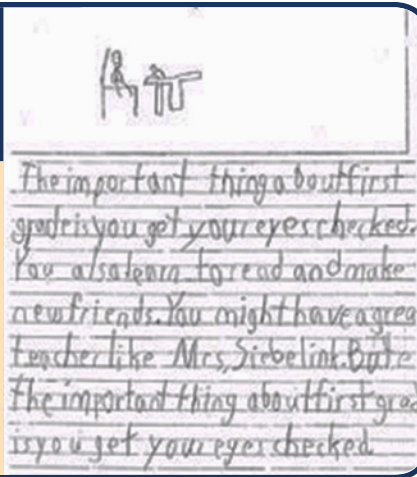 The important thing about first
grade is you get your eyes checked.
You also learn to read and make
new friends. You might have a grea
teacher like Mrs. Siebelink. But
the important thing about first gra
is you get your eyes checked